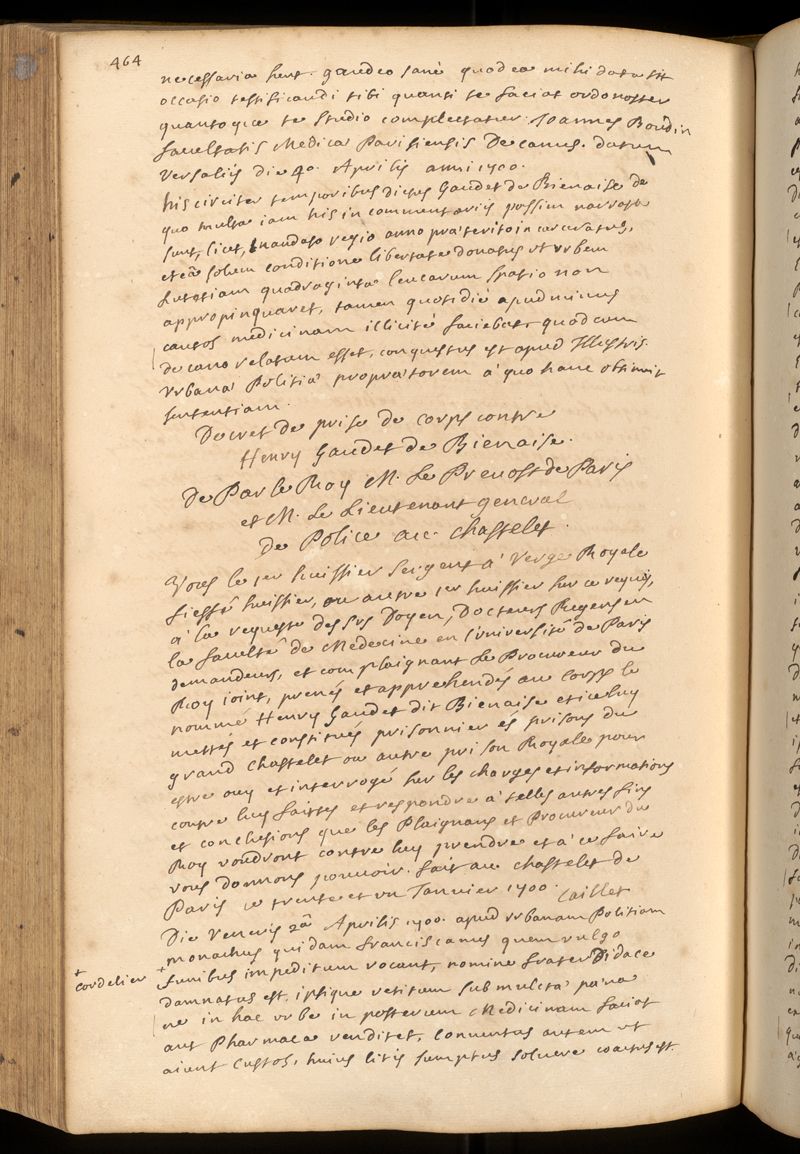 464
necessaria sunt. gaudeo sanè quod ea mihi data sit
occasio testificandi tibi quanti te faciat ordo noster
quantoque te studio complectatur. Joannes Boudin
facultatis Medicae Parisiensis Decanus. datum
Versaliis die 4a. Aprilis anni 1700.
his circiter temporibus dictus Gaudet de Bienaise de
quo multa iam his in commentariis passim narrata
sunt, licet, mandato regio anno praeterito incarceratus,
et eâ solum conditione libertate donatus ut urbem
Lutetiam quadraginta leucarum spatio non
appropinquaret, tamen quotidiè apud minus
cautos medicinam illicitè faciebat, quod cum
decano relatum esset, conquestus est apud Illustris.
urbanae Politiae propraetorem à quo hanc obtinuit
sententiam.
Decret de prise de corps contre
Henry Gaudet de Bienaise.
De Par le Roy M. Le Prevost de Paris
et M. Le Lieutenant general
de Police au Chastelet.
Vous le 1er huissier sergent à Verge Royale
fieffé huissier, ou autre 1er huissier sur ce requis,
à la requeste des Srs Doyen, Docteurs Regens en
la faculté de Medecine en l'université de Paris
demandeurs, et complaignant Le Procureur du
Roy joint, prenés et apprehendés au corps le
nommé Henry Gaudet dit Bienaise et iceluy
mettés et constitués prisonnier és prisons du
grand Chastelet ou autre prison Royale pour
estre ouy et interrogé sur les charges et informations
contre luy faittes et respondre à telles autres fins
et conclusions que les Plaignans et Procureur du
Roy voudront contre luy prendre et à ce faire
vous donnons pouvoir. fait au chastelet de
Paris ce trente et un Janvier 1700. Caillet
Die Veneris 2a Aprilis 1700. apud urbanam Politiam
monachus quidam franciscanus quem vulgo
+ cordelier + funibus impeditum vocant, nomine frater Didace
damnatus est. ipsique vetitum sub mulctae paena
ne in hac urbe in posterum Medicinam faciat
aut Pharmaca venditet, conventus autem ut
aiunt Custos, huius litis sumptus solvere coactus est.